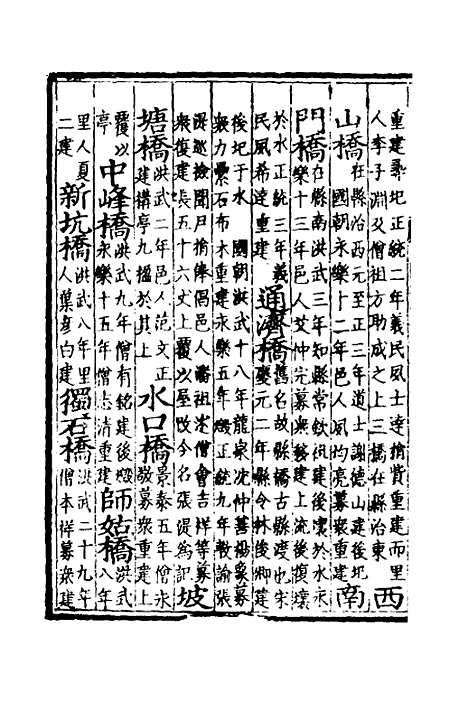 重建尋圯正統二年義民風士達捐貲重建而里
人李子淵父僧祖方助成之上三橋在縣治東
西
山橋
在縣治西元至正三年道士謝德山建後圯
國朝永樂十二年邑人風昀亮募衆重建
南
門橋
在縣南洪武三年知縣常欽建後壞於水永
樂十三年邑人艾仲完募衆移建上流後復壞
於水正統三年義
民風希達重建
通濟橋
舊名故縣橋古縣渡也宋
慶元二年縣令林後卿建
後圯于水 國朝洪武十八年龍泉沈仲善募
衆力纍石布木重建永樂十五年燬正統九年教諭張
湜巡檢關捐俸倡邑人潘祖洪僧會吉祥等募
衆復建長五十六丈上覆以屋改今名張湜爲記
坡
塘橋
洪武二年邑人范文正
建構亭九楹於其上
水口橋
景泰五年僧永
敬募衆重建上
覆以
亭
中峰橋
洪武九年僧有銘建後燬
永樂十五年僧志清重建
師姑橋
洪武
八年
里人夏
二建
新坑橋
洪武八年里
人葉彥白建
獨石橋
洪武二十九年
僧本祥募衆建